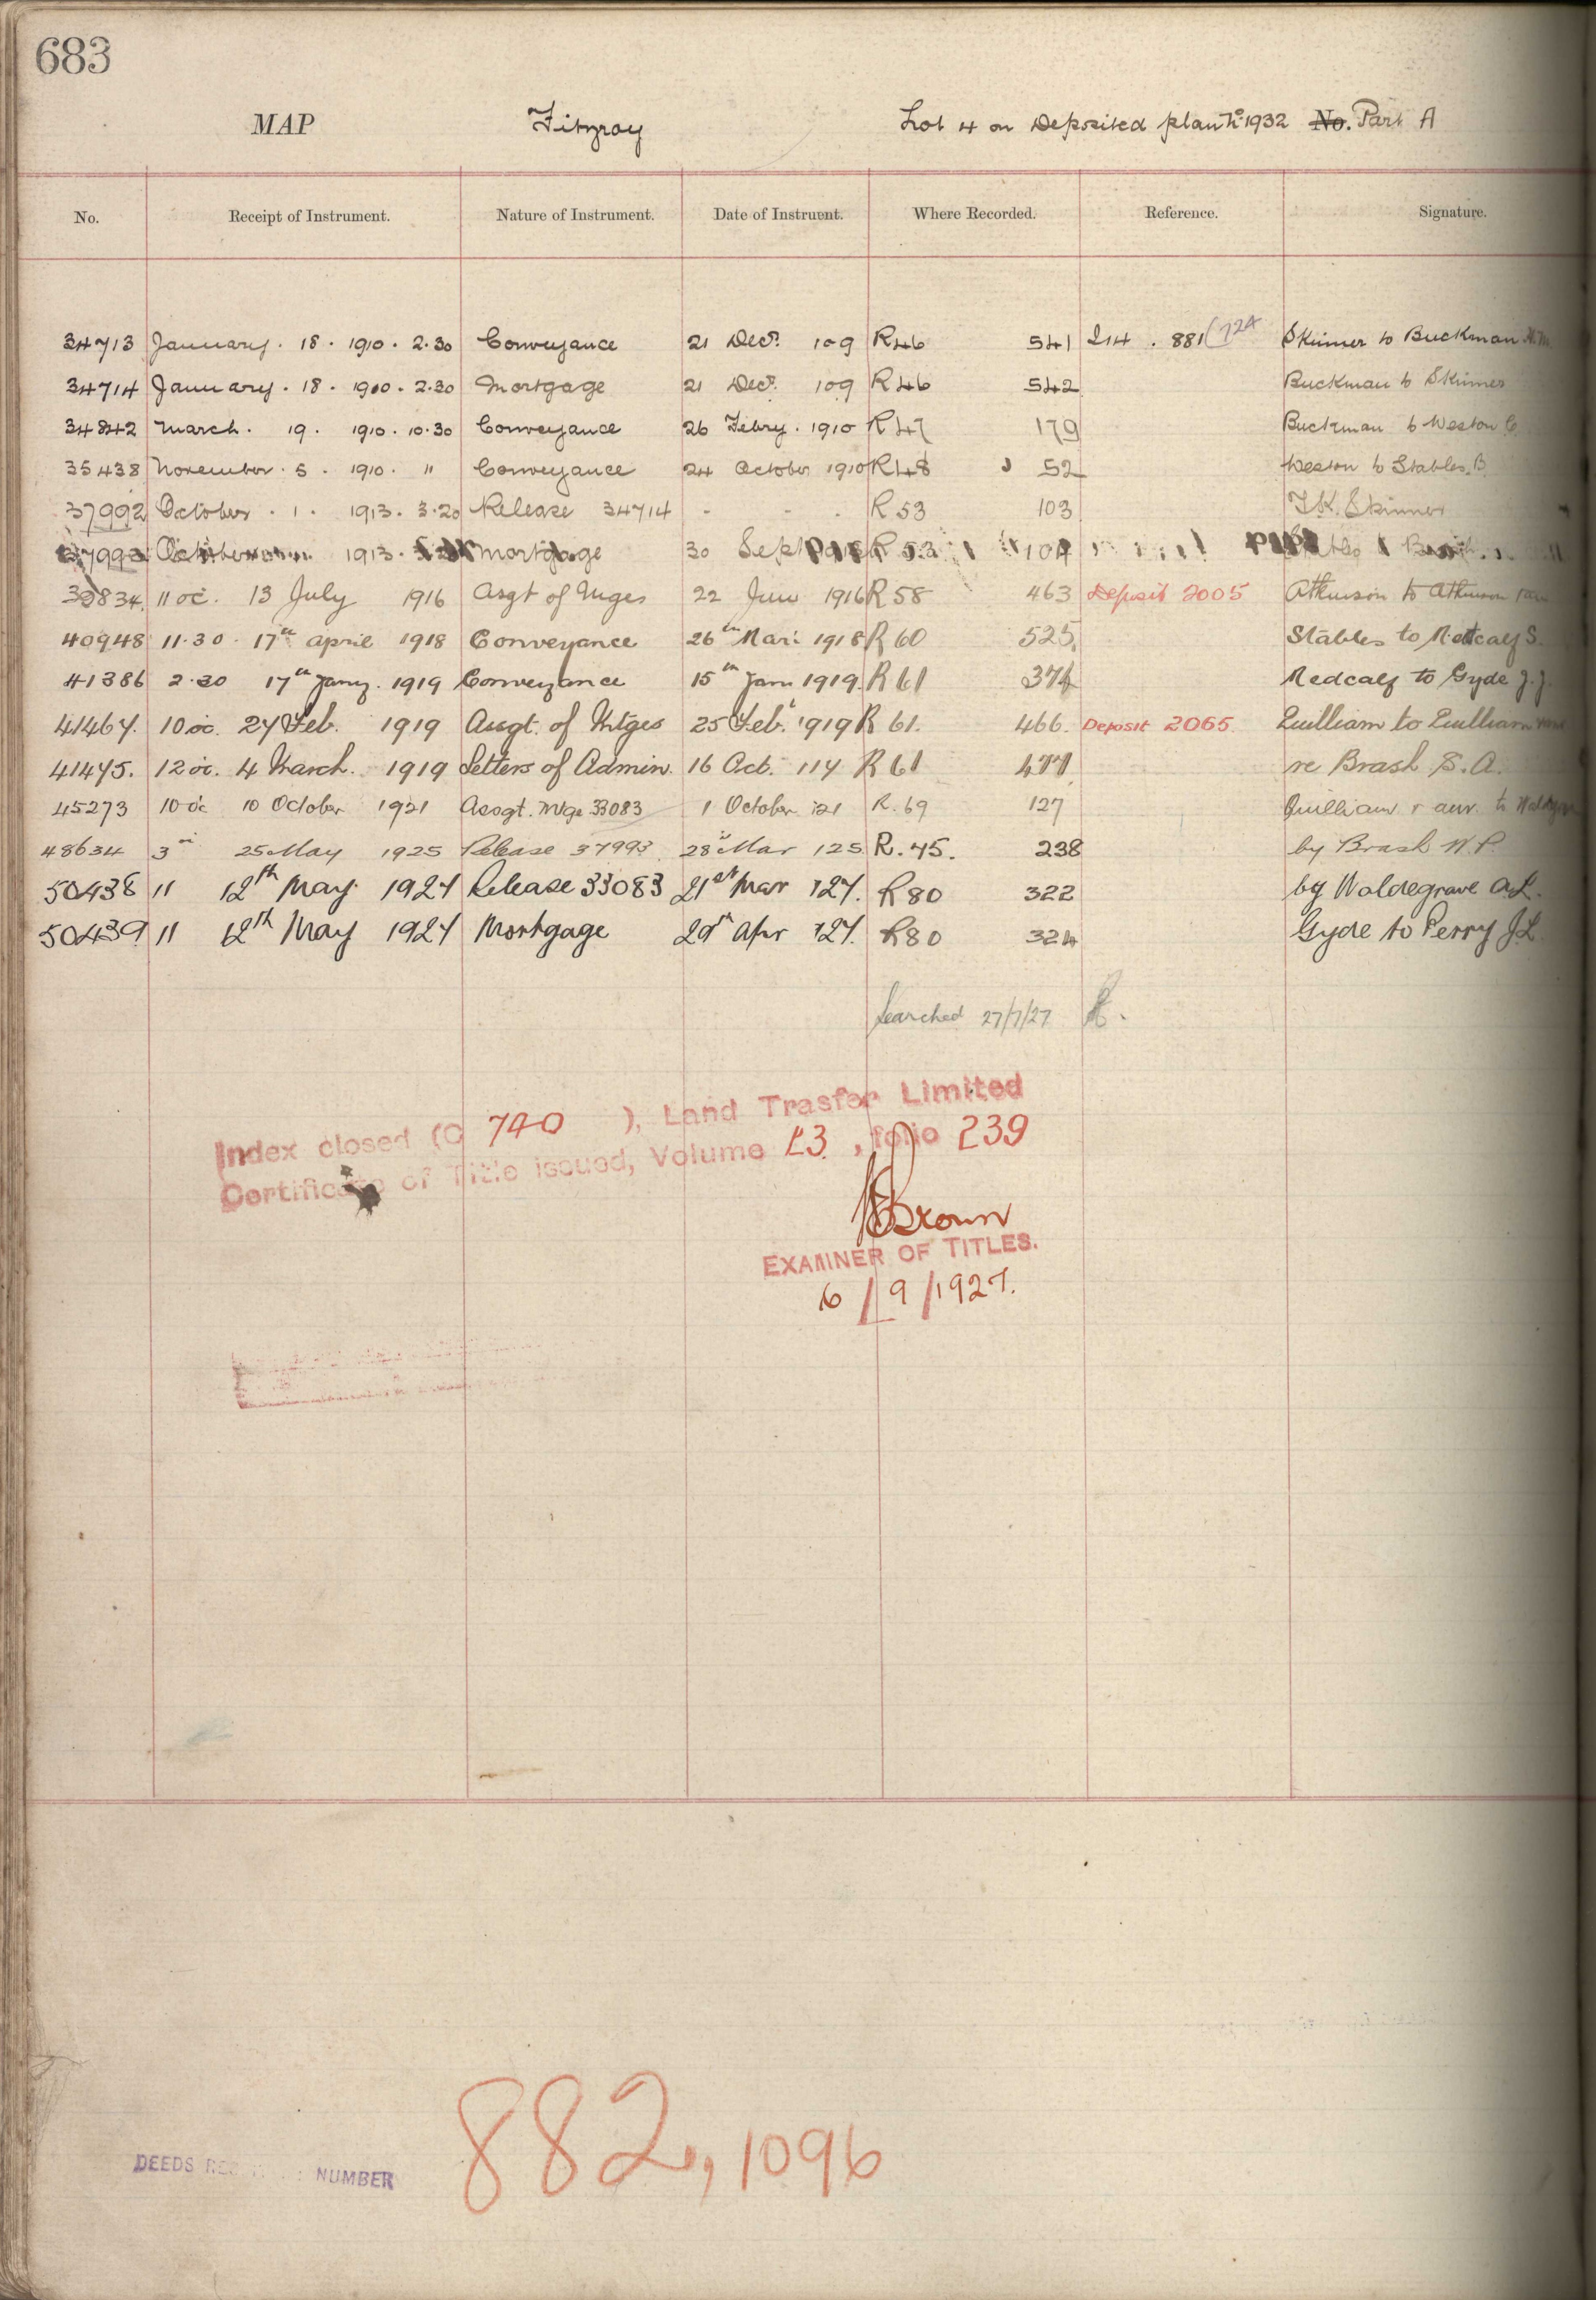 683
MAP Fitzroy Lot 4 on Deposited plan No 1932 No. Part A
No. Receipt of Instrument. Nature of Instrument. Date of Instruent. Where Recorded. Reference. Signature.
34713 January . 18 . 1910 . 2.30 Conveyance 21 Decr. 109 R46 541 I14 . 881 (724 Skinner to Buckman
34714 January . 18 . 1910 . 2.30 Mortgage 21 Decr. 109 R46 542 Buckman to Skinner
34842 March . 19 . 1910 . 10.30 Conveyance 26 Febry . 1910 R47 179 Buckman to Weston C.
35438 November . 5 . 1910 . 11 Conveyance 24 October 1910 R48 52 Weston to Stables. B
37992 October . 1 . 1913 . 3.20 Release 34714 - - - R 53 103 T.K. Skinner
37993 October 1913 . Mortgage 30 Sept R 53 104
39834 11 oc. 13 July 1916 Asgt of Mges 22 June 1916 R 58 463 Deposit 2005 Atkinson to Atkinson
40948 11.30 17th April 1918 Conveyance 26th Mar: 1918 R 60 525 Stables to Metcalf S.
41386 2.20 17th Jany. 1919 Conveyance 15th Jan 1919. R 61 374 Medcalf to Gyde J.J.
41467. 10 oc. 27 Feb. 1919 Assgt. of Mtges 25 Feb. 1919 R 61. 466. Deposit 2065 Quilliam to Quilliam
41475. 12 oc. 4 March. 1919 Letters of Admin. 16 Oct. 117 R 61 477 re Brash S. A.
45273 10 oc 10 October 1921 Assgt. Mtge 33083 1 October 121 R. 69 127 Quilliam & anr. to
48634 3 25 May 1925 Release 37993 28 Mar 125 R. 75. 238 by Brash W.P.
50438 11 12th May 1927 Release 33083 21st Mar 127. R80 322 by Waldegrave A.L.
50439 11 12th May 1927 Mortgage 29th Apr 127. R80 324 Gyde to Perry J.L.
Searched 27/7/27
Index closed (C 740 ), Land Trasfer Limited
Certificate of Title issued, Volume 23 , folio 239
Brown
EXAMINER OF TITLES.
6/9/1927.
DEEDS NUMBER 882, 1096